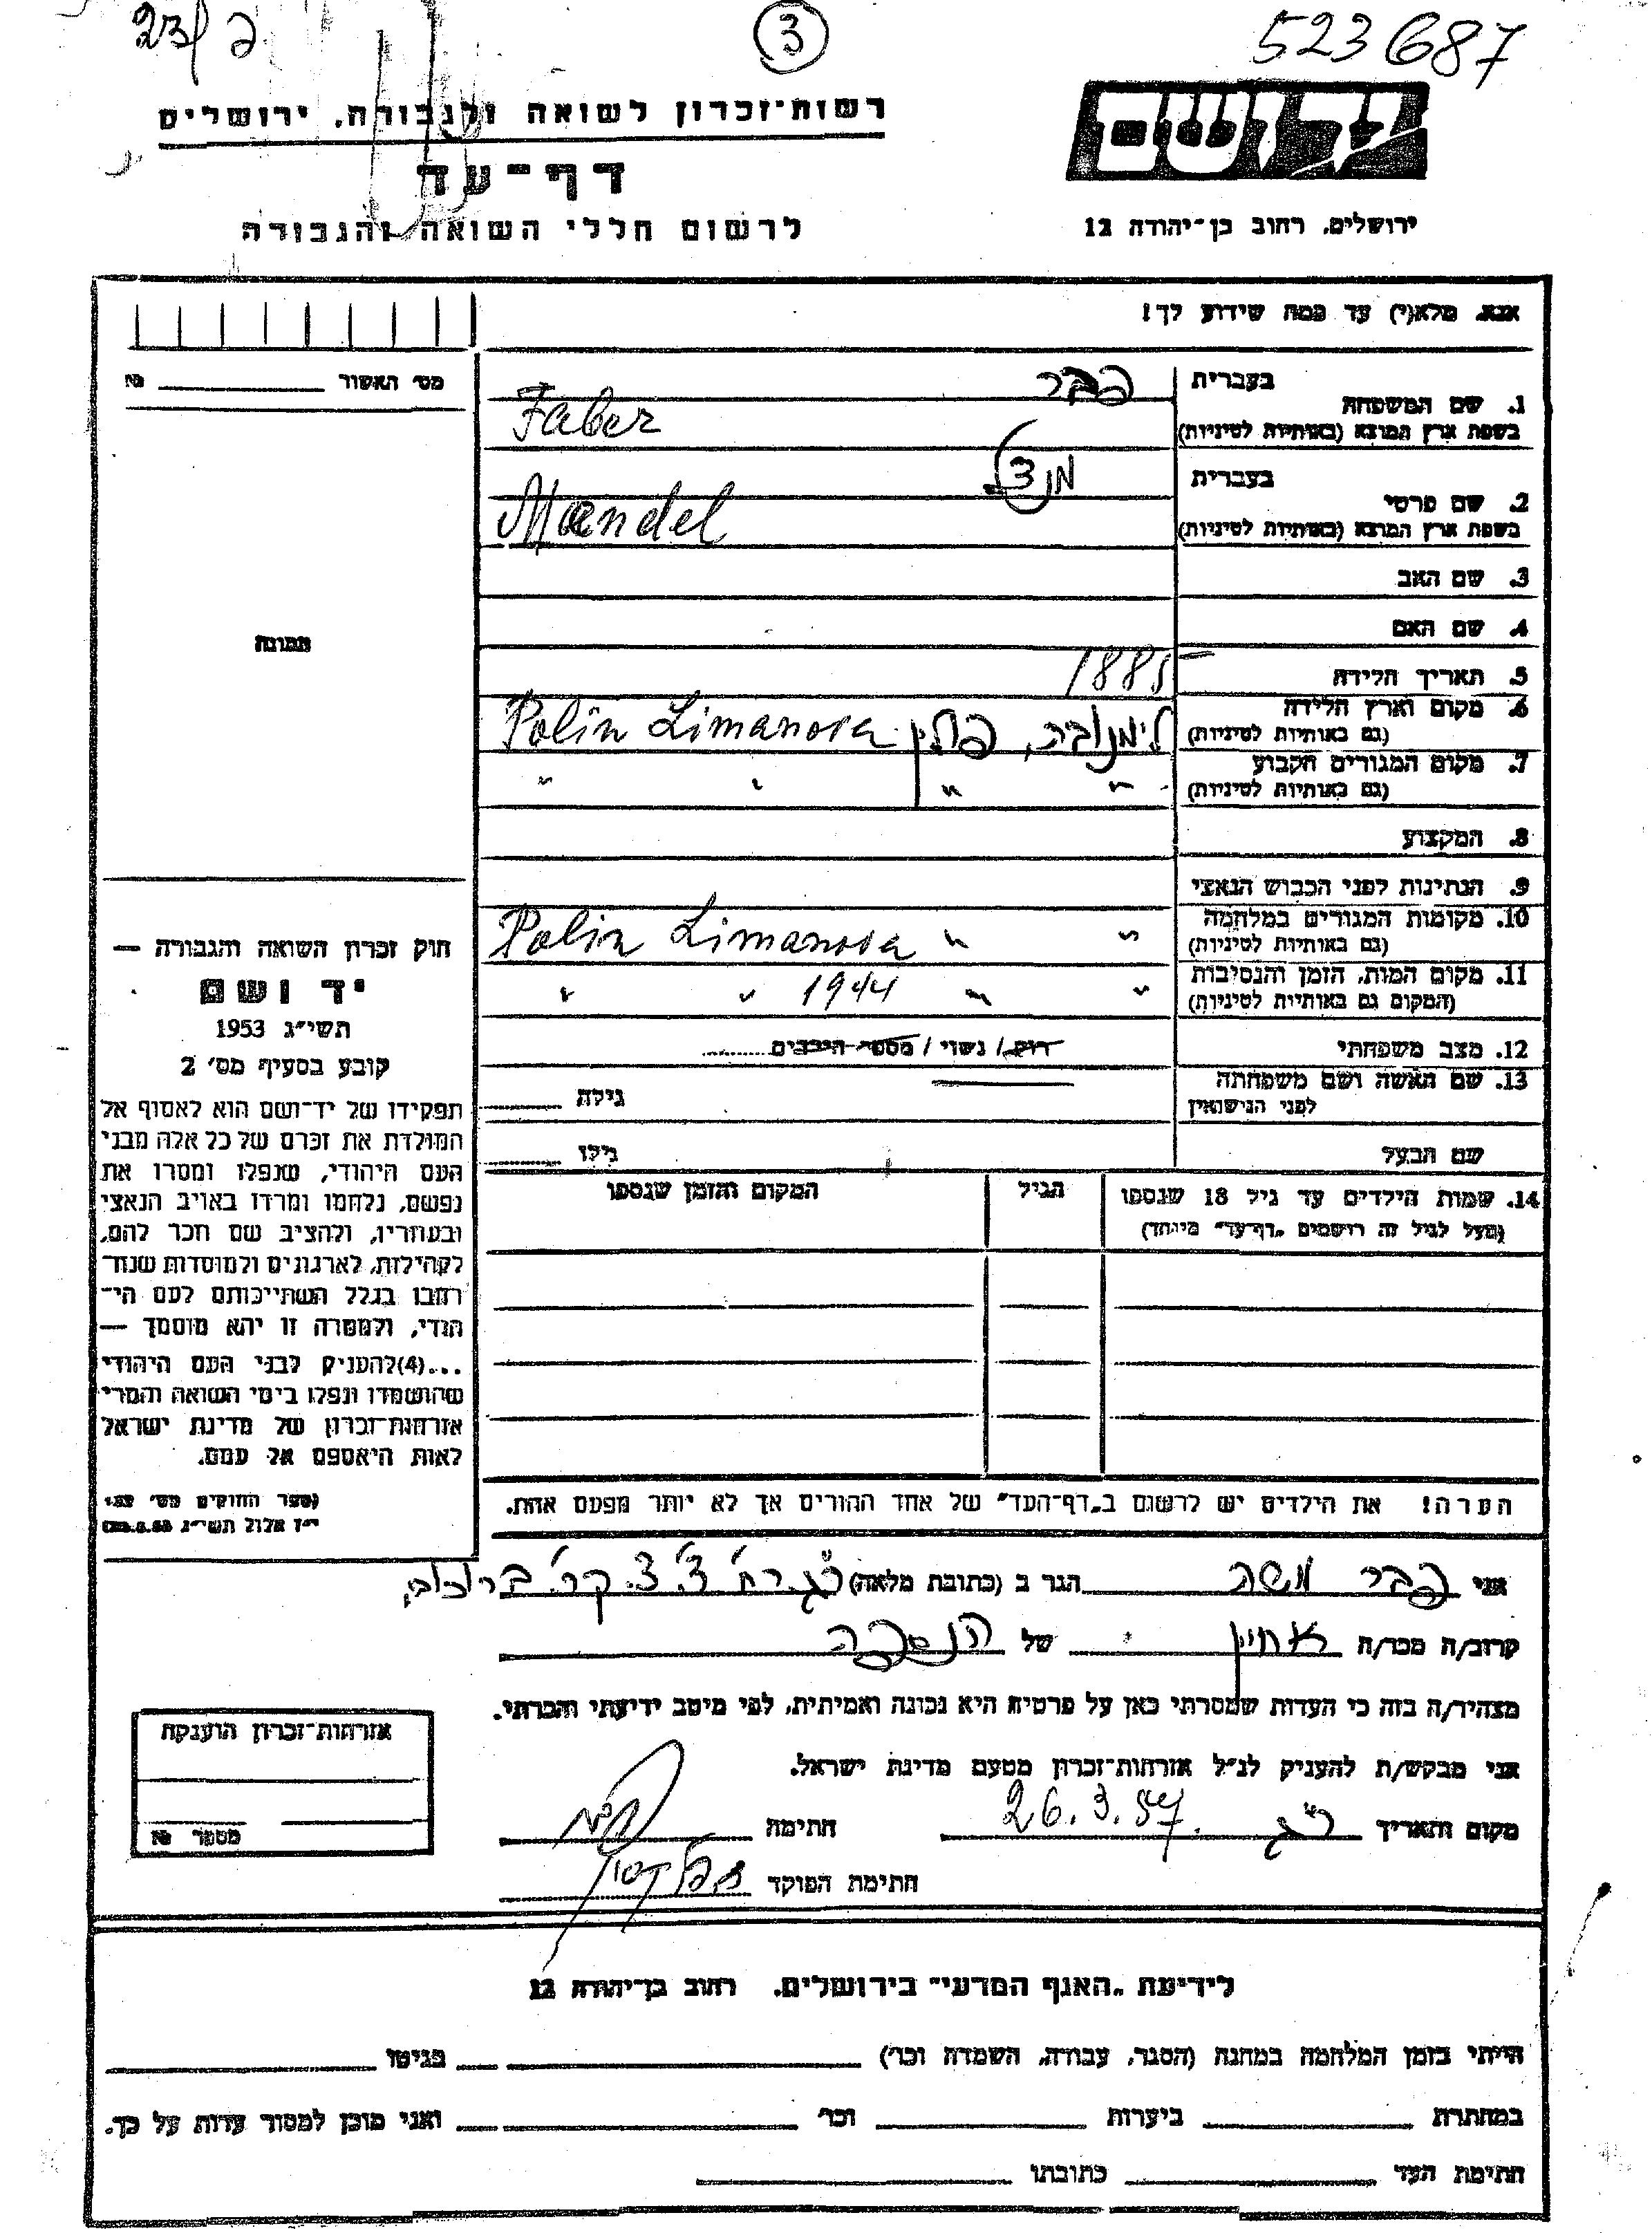 23/פ
3
523687
יד ושם
רשות־זכרון לשואה ולגבורה. ירושלים
דף־עד
לרשום חללי השואה והגבורה
ירושלים. רחוב בן־יהודה 12
אנא. מלא(י) עד כמה שידוע לך!
מס׳ האשור № 
בעברית פבר
1. שם המשפחה
בשפת ארץ המוצא (באותיות לטיניות) Faber
בעברית
2. שם פרטי
בשפת ארץ המוצא (באותיות לטיניות) Mandel
3. שם האב
4. שם האם
תמונה
5. תאריך הלידה 1885
6. מקום וארץ הלידה
(גם באותיות לטיניות) לימנובה, פולין Polin Limanova
7. מקום המגורים הקבוע
(גם באותיות לטיניות) " " " "
8. המקצוע
9. הנתינות לפני הכבוש הנאצי
10. מקומות המגורים במלחמה
(גם באותיות לטיניות) " " Polin Limanova
11. מקום המות, הזמן והנסיבות
(המקום גם באותיות לטיניות) " " 1944 " "
12. מצב משפחתי רוק/ נשוי / מספר הילדים
13. שם האשה ושם משפחתה
לפני הנישואין גילה
שם הבעל גילו
14. שמות הילדים עד גיל 18 שנספו הגיל המקום והזמן שנספו
(מעל לגיל זה רושמים „דף־עד" מיוחד)
חוק זכרון השואה והגבורה —
יד ושם
תשי״ג 1953
קובע בסעיף מס׳ 2
תפקידו של יד־ושם הוא לאסוף אל
המולדת את זכרם של כל אלה מבני
העם היהודי, שנפלו ומסרו את
נפשם, נלחמו ומרדו באויב הנאצי
ובעוזריו, ולהציב שם וזכר להם,
לקהילות, לארגונים ולמוסדות שנח־
רבו בגלל השתייכותם לעם הי־
הודי, ולמטרה זו יהא מוסמך —
...(4)להעניק לבני העם היהודי
שהושמדו ונפלו בימי השואה והמרי
אזרחות־זכרון של מדינת ישראל
לאות היאספם אל עמם.
(ספר החוקים מס׳ 132
י״ז אלול תשי״ג 28.8.53)
הערה! את הילדים יש לרשום ב„דף־העד" של אחד ההורים אך לא יותר מפעם אחת.
אני פבר משה הגר ב (כתובת מלאה)
קרוב/ה מכר/ה אחיין של הנספה
מצהיר/ה בזה כי העדות שמסרתי כאן על פרטיה היא נכונה ואמיתית, לפי מיטב ידיעתי והכרתי.
אני מבקש/ת להעניק לנ״ל אזרחות־זכרון מטעם מדינת ישראל.
מקום ותאריך ר״ג 26.3.57. חתימה
חתימת הפוקד
אזרחות־זכרון הוענקה
מספר №
לידיעת „האגף המדעי" בירושלים. רחוב בן־יהודה 12
הייתי בזמן המלחמה במחנה (הסגר, עבודה, השמדה וכר׳) בגיטו
במחתרת ביערות וכר׳ ואני מוכן למסור עדות על כך.
חתימת העד כתובתו